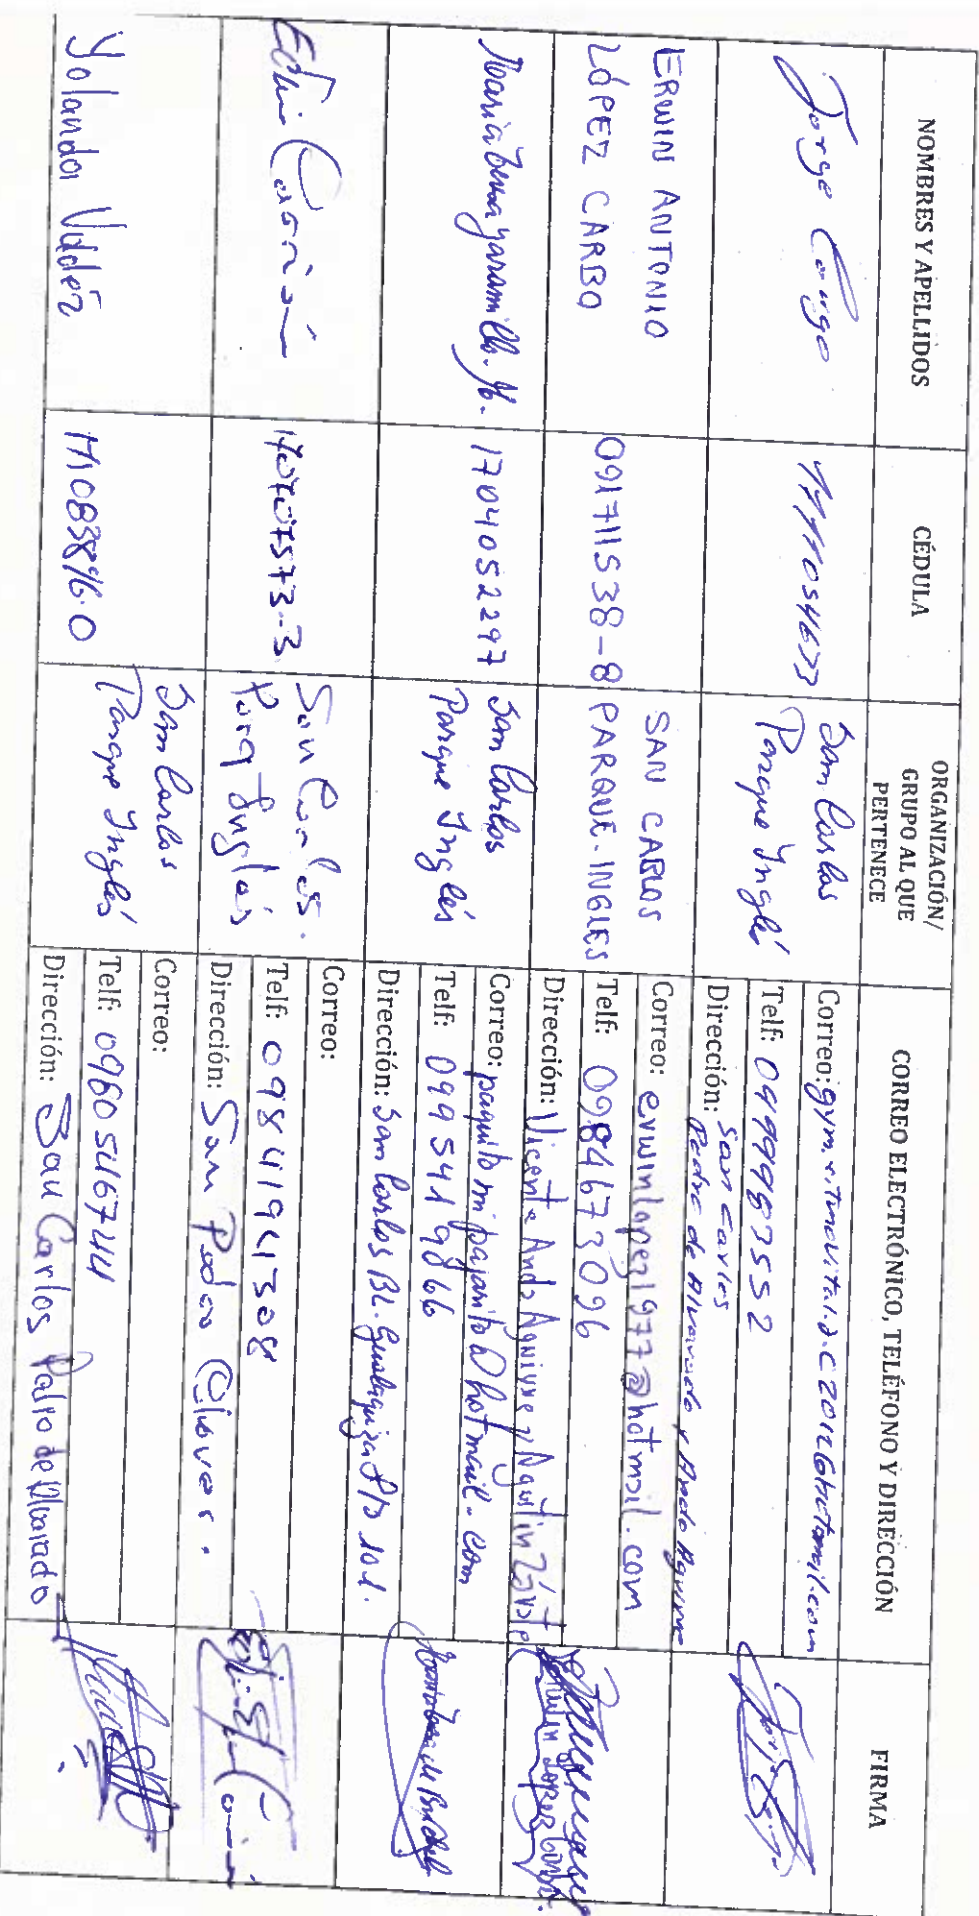 NOMBRES Y APELLIDOS
CÉDULA
ORGANIZACIÓN/
GRUPO AL QUE
PERTENECE
CORREO ELECTRÓNICO, TELÉFONO Y DIRECCIÓN
FIRMA
Jorge
San Carlos
Parque Inglé
Correo:
Telf: 0999987552
Dirección: San Carlos
Pedro de Alvarado y Ando Aguirre
ERWIN ANTONIO
LÓPEZ CARBO
091711538-8
SAN CARLOS
PARQUE-INGLES
Correo: erwinlopez1977@hotmail.com
Telf: 0984673096
Dirección: Vicente Ando Aguirre y Agustin Zárate
Maria
1704052297
San Carlos
Parque Inglés
Correo: paquitomipajarito@hotmail.com
Telf: 0995419866
Dirección: San Carlos BL. Gualaquiza P/B 101.
San Carlos.
Parq Inglés
Correo:
Telf: 0984194308
Dirección: San Pedro
Yolanda
San Carlos
Parque Inglés
Correo:
Telf: 0960546744
Dirección: San Carlos Pedro de Alvarado